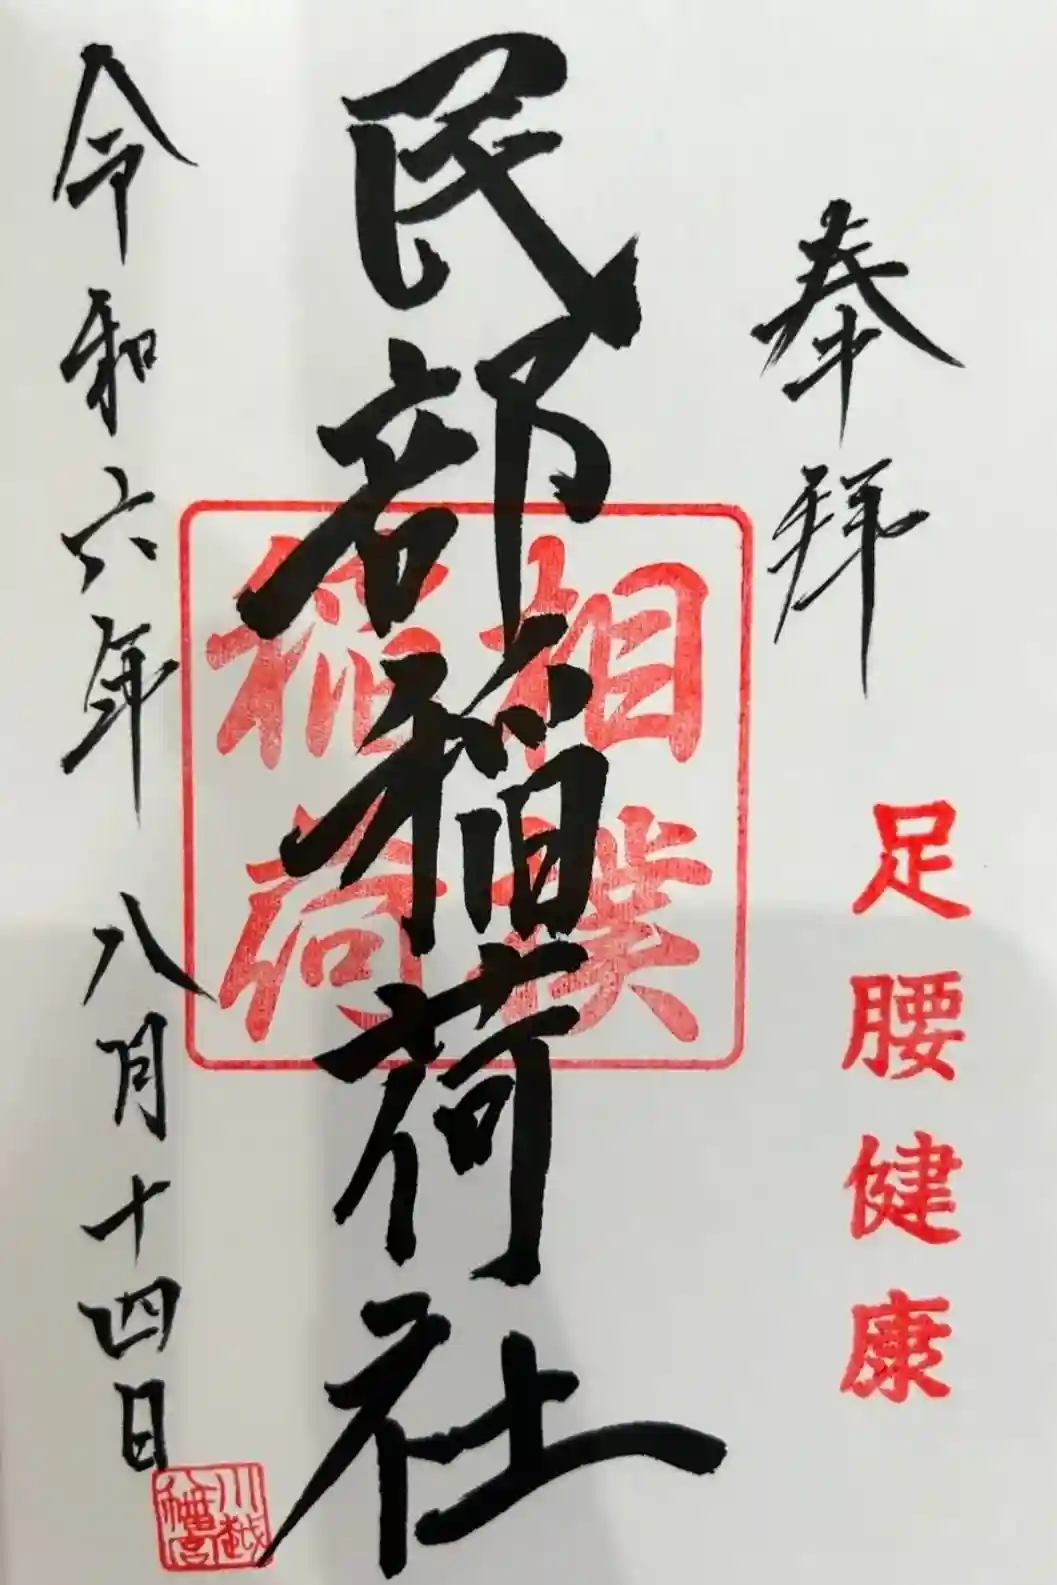 奉拝
足腰健康
民部稲荷社
相撲
稲荷
令和六年八月十四日
川越
八幡宮